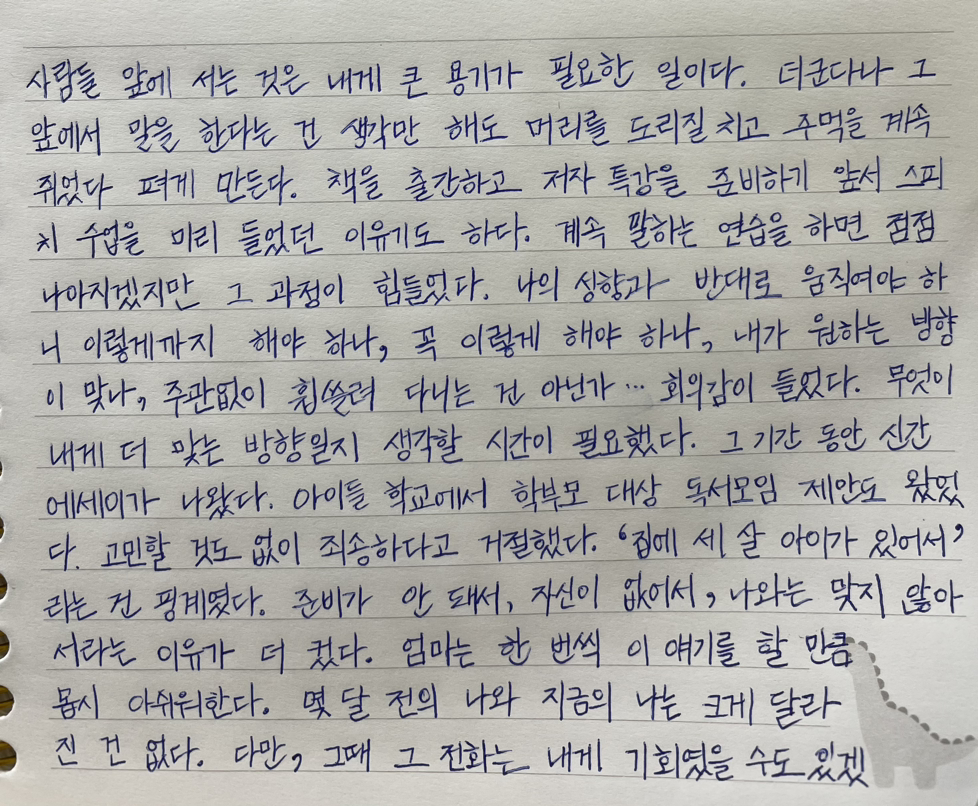 사람들 앞에 서는 것은 내게 큰 용기가 필요한 일이다. 더군다나 그
앞에서 말을 한다는 건 생각만 해도 머리를 도리질 치고 주먹을 계속
쥐었다 펴게 만든다. 책을 출간하고 저자 특강을 준비하기 앞서 스피
치 수업을 미리 들었던 이유기도 하다. 계속 말하는 연습을 하면 점점
나아지겠지만 그 과정이 힘들었다. 나의 성향과 반대로 움직여야 하
니 이렇게까지 해야 하나, 꼭 이렇게 해야 하나, 내가 원하는 방향
이 맞나, 주관없이 휩쓸려 다니는 건 아닌가… 회의감이 들었다. 무엇이
내게 더 맞는 방향일지 생각할 시간이 필요했다. 그 기간 동안 신간
에세이가 나왔다. 아이들 학교에서 학부모 대상 독서모임 제안도 왔었
다. 고민할 것도 없이 죄송하다고 거절했다. ‘집에 세 살 아이가 있어서’
라는 건 핑계였다. 준비가 안 돼서, 자신이 없어서, 나와는 맞지 않아
서라는 이유가 더 컸다. 엄마는 한 번씩 이 얘기를 할 만큼
몹시 아쉬워한다. 몇 달 전의 나와 지금의 나는 크게 달라
진 건 없다. 다만, 그때 그 전화는 내게 기회였을 수도 있겠